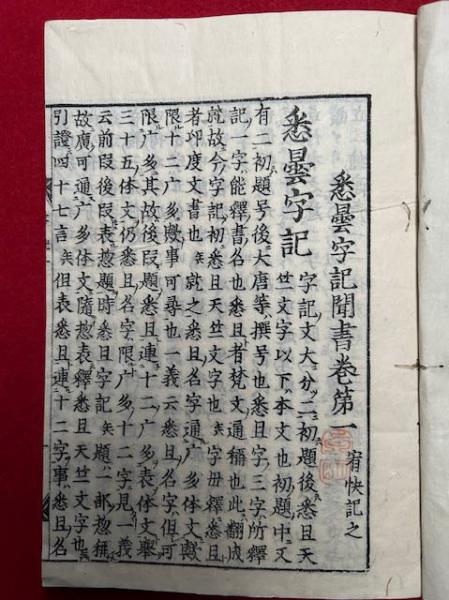 悉曇字記聞書卷第一 宥快記之
悉曇字記 字記文大分二初題後悉且天
竺一文字以下本文也初題中又
有二初題号後大唐等撰号也悉且字三字所釋
記一字能釋書名也悉且者梵文通稱也此翻成
就故今字記初悉且天竺文字也矣字母釋悉且
者印度文書也矣就之悉且名字通广多体文歟
限十二广多歟事可尋也一義云悉且名字但可
限广多其故後段題悉且連十二广多表体文擧
三十五体文仍悉且名字限广多十二字見一義
云前段後段表惣題時悉且字記題一部惣無
故廣可通广多体文隨惣表釋悉且天竺文字也
引證四十七言矣但表悉且連十二字事悉且名